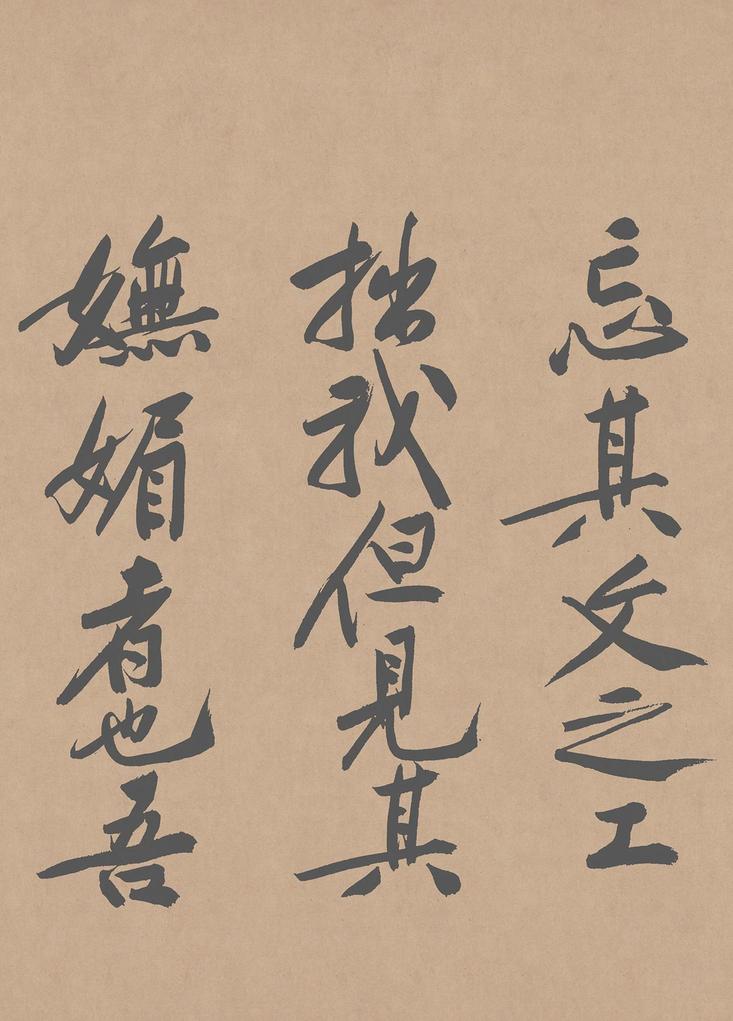 忘其文之工
拙我但見其
嫵媚者也吾